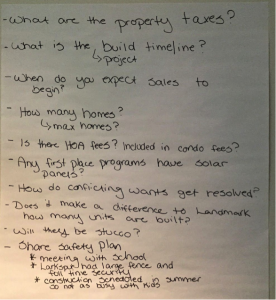 - What are the property taxes?
- What is the build timeline?
↳ project
- When do you expect sales to
begin?
- How many homes?
↳ max homes?
- Is there HOA fees? Included in condo fees?
- Any first place programs have solar
panels?
- How do conflicting wants get resolved?
- Does it make a difference to Landmark
how many units are built?
- Will they be stucco?
- Share safety plan
* meeting with school
* Larkspur has large fence and
full time security
* construction scheduled in summer
so not as busy with kids